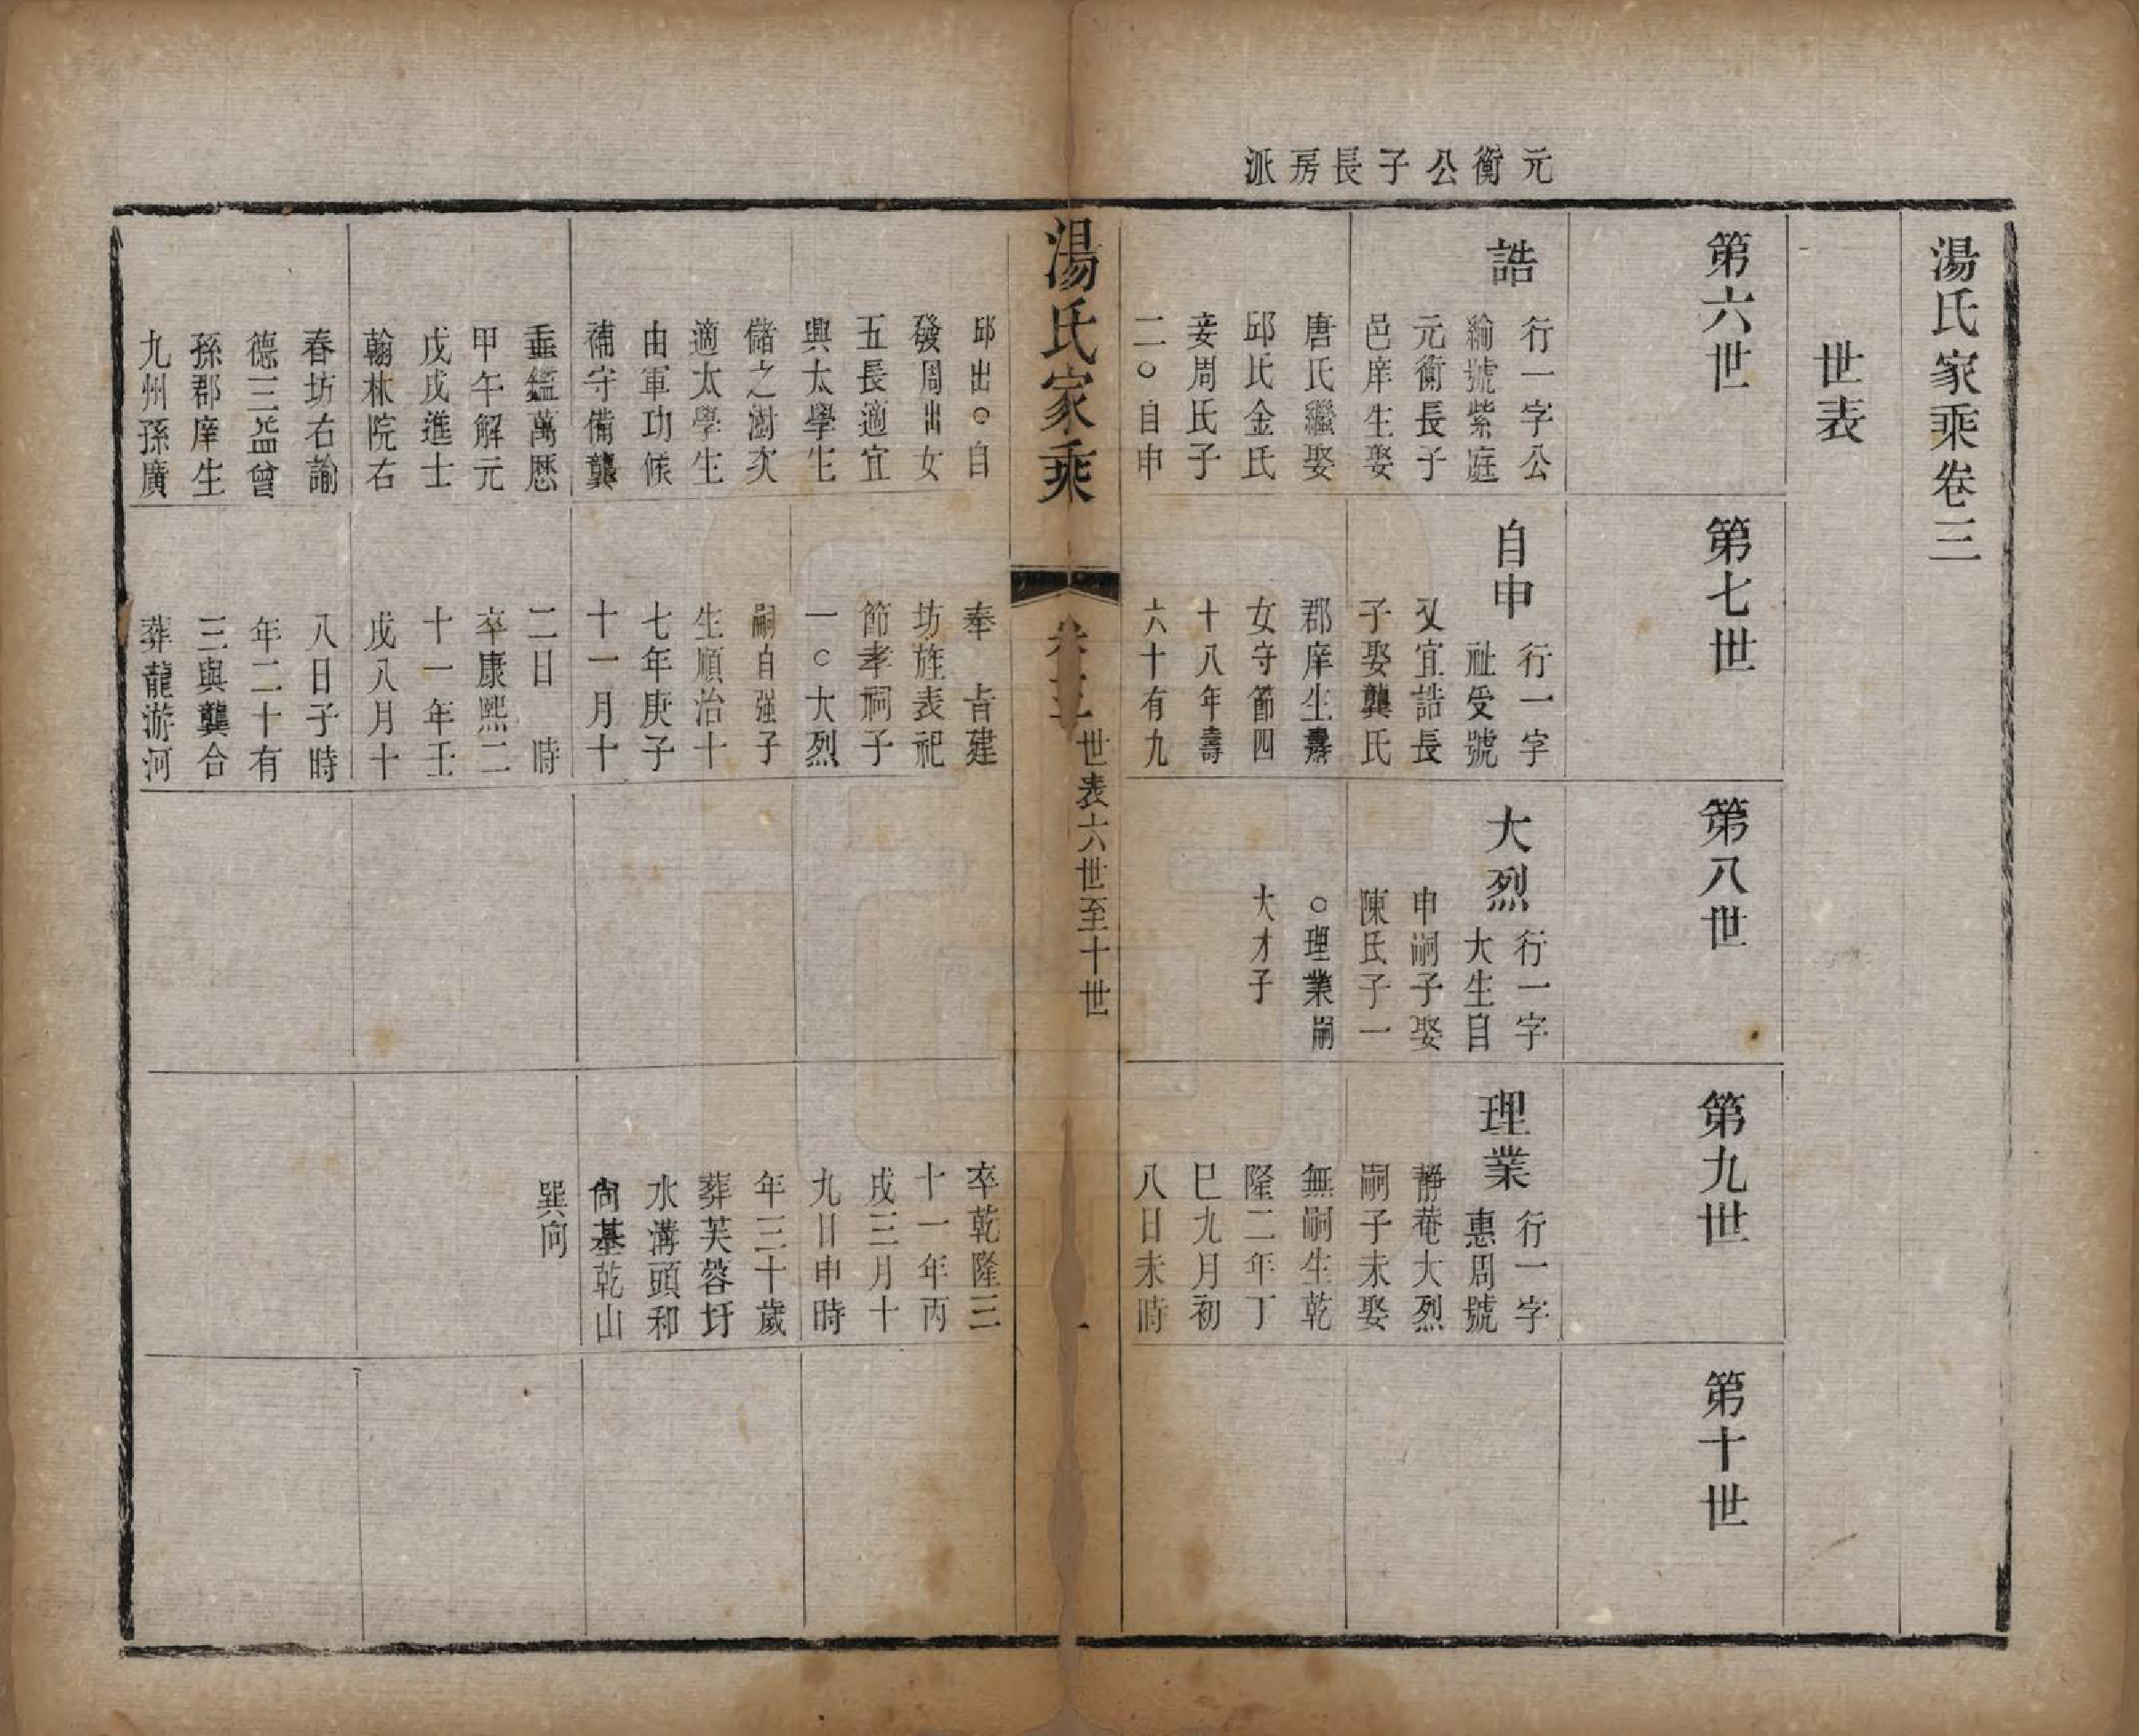 元衡公子長房派
湯氏家乘卷三
世表
第六世
第七世
第八世
第九世
第十世
誥
行一字公
綸號紫庭
元衡長子
邑庠生娶
唐氏繼娶
邱氏金氏
妾周氏子
二○自申
邱出○自
發周出女
五長適宜
興太學生
儲之澍次
適太學生
由軍功候
補守備龔
垂鑑萬厯
甲午解元
戊戌進士
翰林院右
春坊右諭
德三益曾
孫郡庠生
九州孫廣
自申
行一字
祉受號
又宜誥長
子娶龔氏
郡庠生壽
女守節四
十八年壽
六十有九
奉 旨建
坊旌表祀
節孝祠子
一○大烈
嗣自强子
生順治十
七年庚子
十一月十
二日 時
卒康熙二
十一年壬
戌八月十
八日子時
年二十有
三與龔合
葬龍游河
大烈
行一字
大生自
申嗣子娶
陳氏子一
○理業嗣
大才子
理業
行一字
惠周號
靜菴大烈
嗣子未娶
無嗣生乾
隆二年丁
巳九月初
八日未時
卒乾隆三
十一年丙
戌三月十
九日申時
年三十歲
葬芙蓉圩
水溝頭和
尙基乾山
巽向
湯氏家乘
卷三
世表六世至十世
一